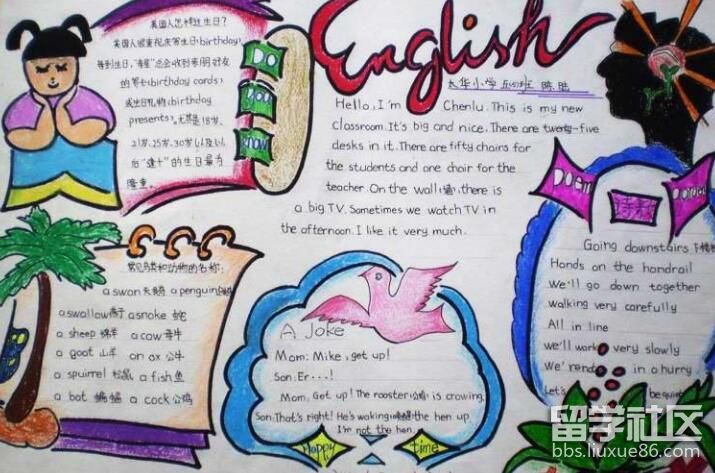 美国人怎样过生日?
美国人很重视庆寄生日(birthday),
等到生日,"寿星"总会收到亲朋好友
的寄卡(birthday cards)
或生日礼物(birthday
presents),尤其是18岁、
21岁、25岁、30岁(以及以
后"逢十"的生日最为
隆重。
DO
you
know
English
大华小学 班 陈
Hello, I'm Chenlu. This is my new
classroom. It's big and nice. There are twenty-five
desks in it. There are fifty chairs for
the students and one chair for the
teacher. On the wall(墙), there is
a big TV. Sometimes we watch TV in
the afternoon. I like it very much.
常见鸟类和动物的名称:
a swan 天鹅 a penguin 企鹅
a swallow 燕子 a snake 蛇
a sheep 绵羊 a cow 母牛
a goat 山羊 an ox 公牛
a spuirrel 松鼠 a fish 鱼
a bat 蝙蝠 a cock 公鸡
A Joke
Mom: Mike, get up!
Son: Er...!
Mom: Get up! The rooster(公鸡) is crowing.
Son: That's right! He's waking(唤醒) the hen up.
I'm not the hen.
Happy time
Poem 诗歌
Going downstairs 下楼梯
Hands on the handrail
We'll go down together
walking very carefully
All in line
we'll very slowly
in a hurry
Let's be quiet
留学社区
bbs.liuxue86.com